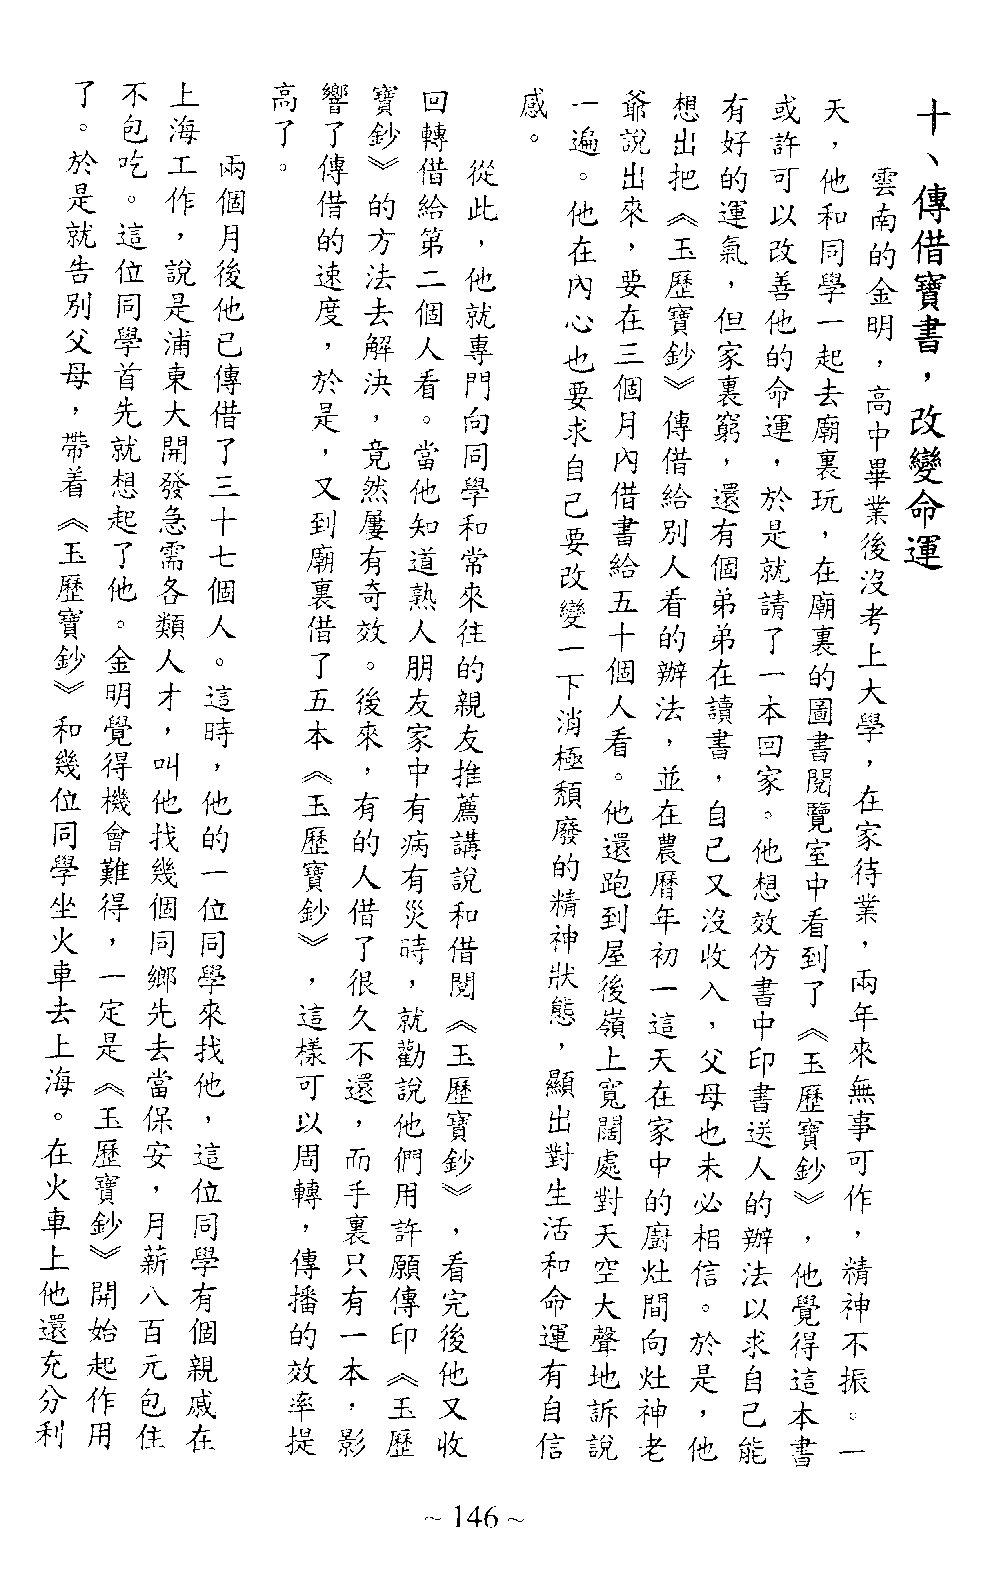 十、傳借寶書，改變命運
雲南的金明，高中畢業後沒考上大學，在家待業，兩年來無事可作，精神不振。一
天，他和同學一起去廟裏玩，在廟裏的圖書閱覽室中看到了《玉歷寶鈔》，他覺得這本書
或許可以改善他的命運，於是就請了一本回家。他想效仿書中印書送人的辦法以求自己能
有好的運氣，但家裏窮，還有個弟弟在讀書，自己又沒收入，父母也未必相信。於是，他
想出把《玉歷寶鈔》傳借給別人看的辦法，並在農曆年初一這天在家中的廚灶間向灶神老
爺說出來，要在三個月內借書給五十個人看。他還跑到屋後嶺上寬闊處對天空大聲地訴說
一遍。他在內心也要求自己要改變一下消極頹廢的精神狀態，顯出對生活和命運有自信
感。
從此，他就專門向同學和常來往的親友推薦講說和借閱《玉歷寶鈔》，看完後他又收
回轉借給第二個人看。當他知道熟人朋友家中有病有災時，就勸說他們用許願傳印《玉歷
寶鈔》的方法去解決，竟然屢有奇效。後來，有的人借了很久不還，而手裏只有一本，影
響了傳借的速度，於是，又到廟裏借了五本《玉歷寶鈔》，這樣可以周轉，傳播的效率提
高了。
兩個月後他已傳借了三十七個人。這時，他的一位同學來找他，這位同學有個親戚在
上海工作，說是浦東大開發急需各類人才，叫他找幾個同鄉先去當保安，月薪八百元包住
不包吃。這位同學首先就想起了他。金明覺得機會難得，一定是《玉歷寶鈔》開始起作用
了。於是就告別父母，帶着《玉歷寶鈔》和幾位同學坐火車去上海。在火車上他還充分利
~ 146 ~